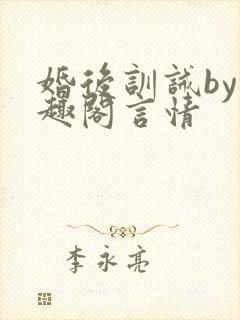 婚後訓誡by
趣閣言情
李永亮